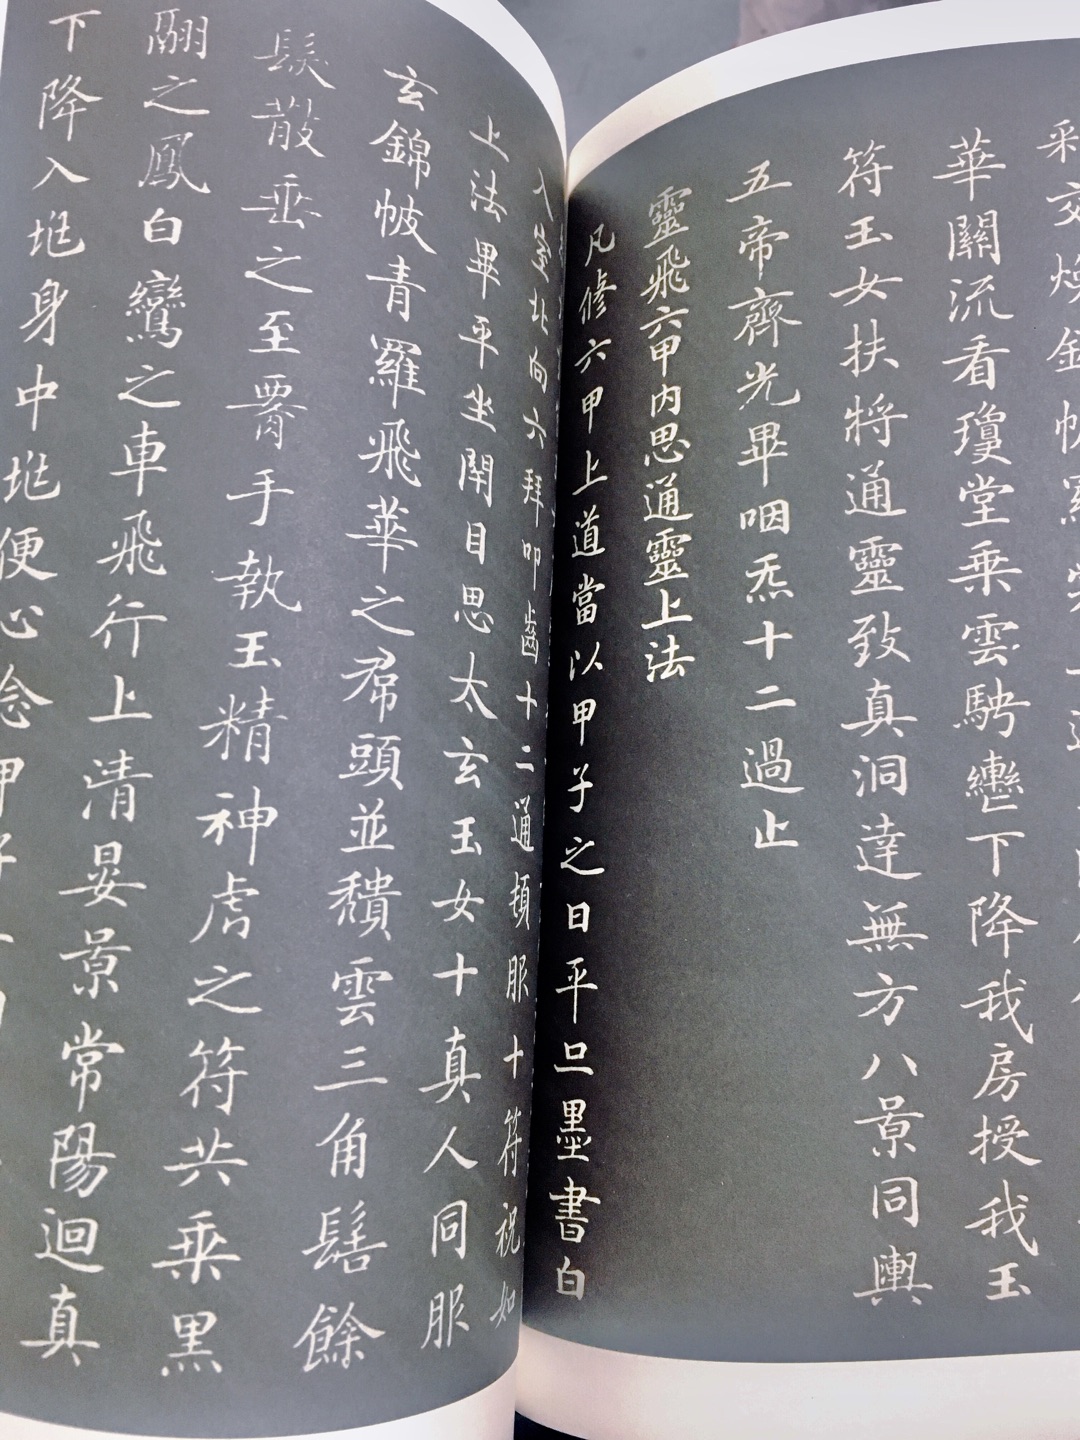 彩交煥錦帔羅裳
華關流看瓊堂乘雲騁轡下降我房授我玉
符玉女扶將通靈致真洞達無方八景同輿
五帝齊光畢咽炁十二過止
靈飛六甲內思通靈上法
凡修六甲上道當以甲子之日平旦墨書白
入室北向六拜叩齒十二通頓服十符祝如
上法畢平坐閇目思太玄玉女十真人同服
玄錦帔青羅飛華之帬頭並穨雲三角髻餘
髮散垂之至䙲手執玉精神虎之符共乘黑
翮之鳳白鸞之車飛行上清晏景常陽迴真
下降入地身中地
便心念甲子